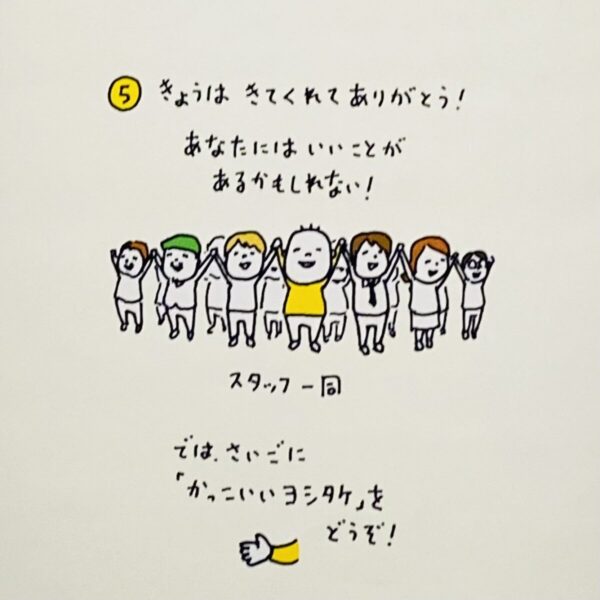 5 きょうは きてくれて ありがとう!
あなたには いいことが
あるかもしれない!
スタッフ一同
では、さいごに
「かっこいいヨシタケ」を
どうぞ!